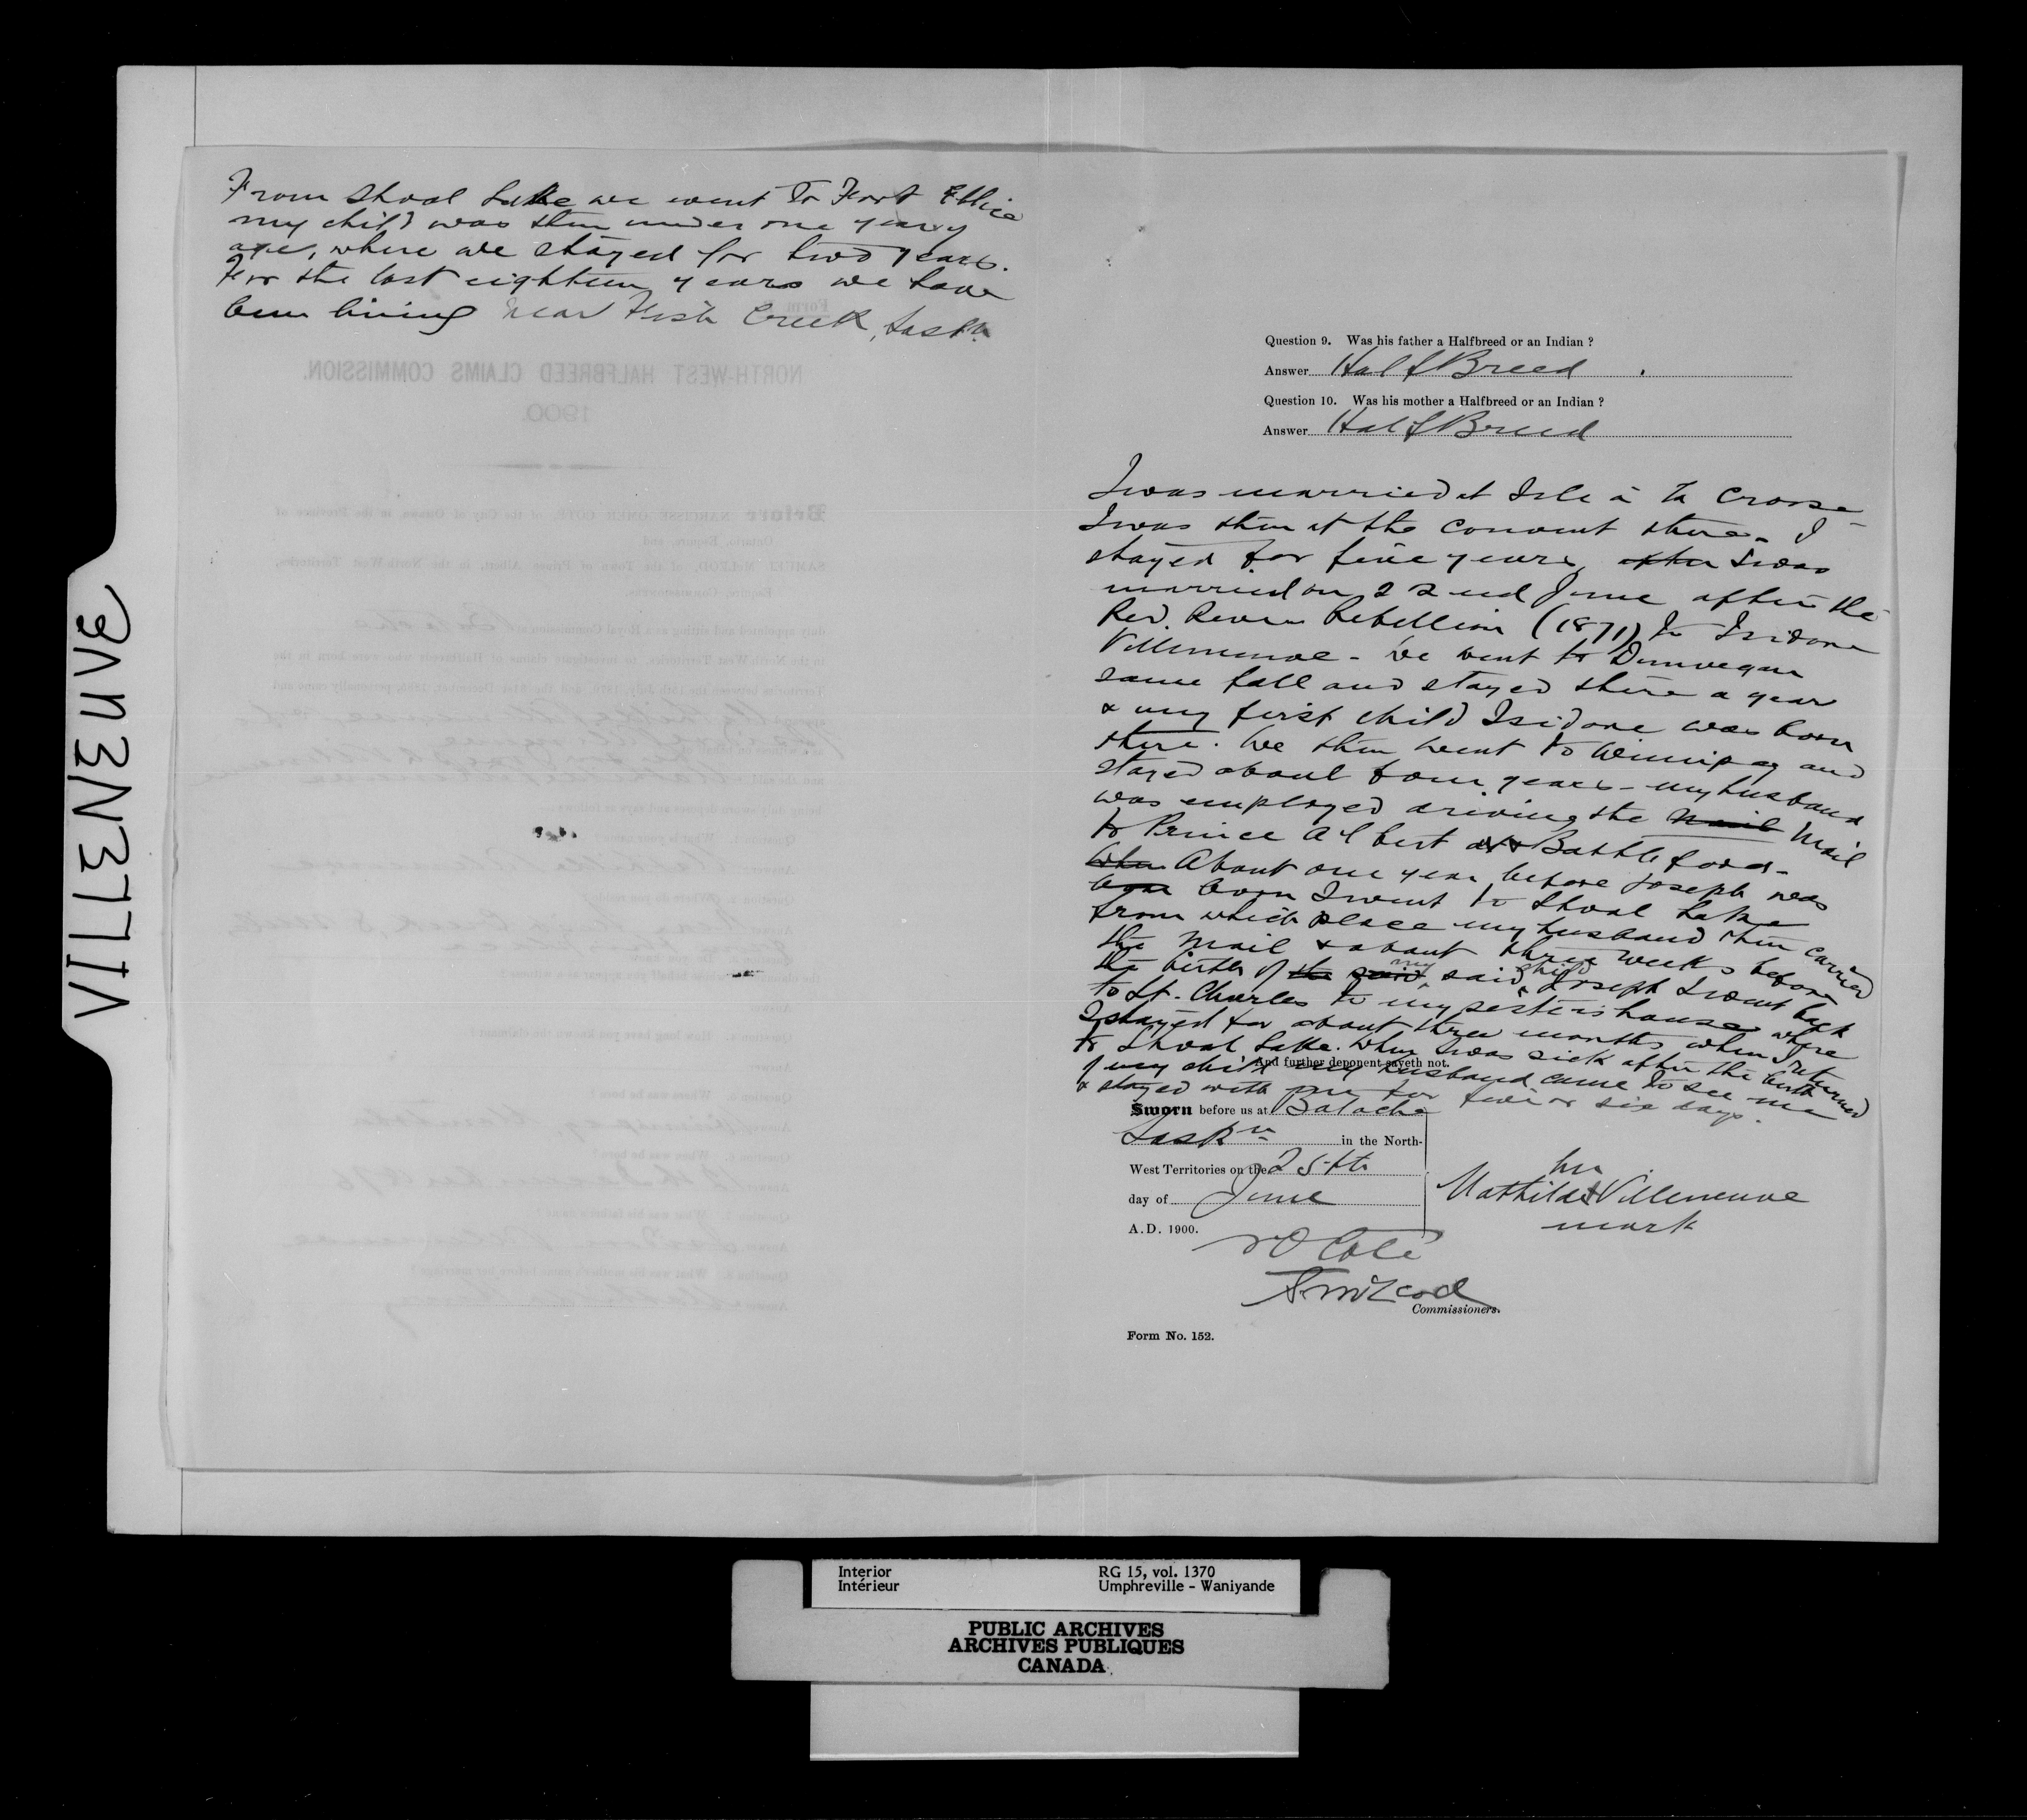 VILLENEUVE
From Shoal Lake we went to Fort Ellice
my child was then under one year of
age, where we stayed for two years.
For the last eighteen years we have
been living near Fish Creek, Sask^n.
NORTH-WEST HALFBREED CLAIMS COMMISSION.
1900.
Question 9. Was his father a Halfbreed or an Indian ?
Answer Half Breed
Question 10. Was his mother a Halfbreed or an Indian ?
Answer Half Breed
I was married at Isle à la Crosse
I was then at the convent there - I
stayed for five years, after I was
married on 22nd June after the
Red River Rebellion (1871) to Isidore
Villeneuve - We went to Dunvegan
same fall and stayed there a year
& my first child Isidore was born
there. We then went to Winnipeg and
stayed about four years - my husband
was employed driving the Mail Mail
to Prince Albert & Battleford -
When About one year before Joseph was
born born I went to Shoal Lake
from which place my husband then carried
the mail & about three weeks before
the birth of the said my said child Joseph I went back
to St. Charles to my sister's house where
I stayed for about three months when I returned
to Shoal Lake. When I was sick after the birth
of my child husband came to see me
& stayed with me for five or six days.
And further deponent sayeth not.
Sworn before us at Batoche
Sask^n in the North-
West Territories on the 25th
day of June
A.D. 1900.
her
Mathilde X Villeneuve
mark
N O Coté
S McLeod
Commissioners.
Form No. 152.
Interior
Intérieur
RG 15, vol. 1370
Umphreville - Waniyande
PUBLIC ARCHIVES
ARCHIVES PUBLIQUES
CANADA